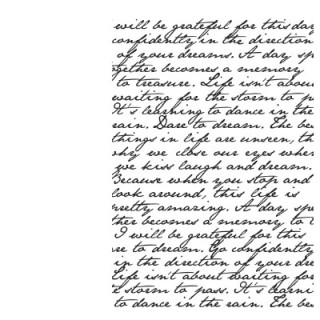 will be grateful for this day
confidently in the direction
of your dreams. A day sp
ogether becomes a memory
to treasure. Life isn't abou
waiting for the storm to p
It's learning to dance in the
rain. Dare to dream. The bes
things in life are unseen, th
why we close our eyes when
we kiss laugh and dream.
Because when you stop and
look around, this life is
pretty amazing. A day spe
ther becomes a memory to t
I will be grateful for this
re to dream. Go confidently
in the direction of your dre
Life isn't about waiting for
e storm to pass. It's learni
to dance in the rain. The be